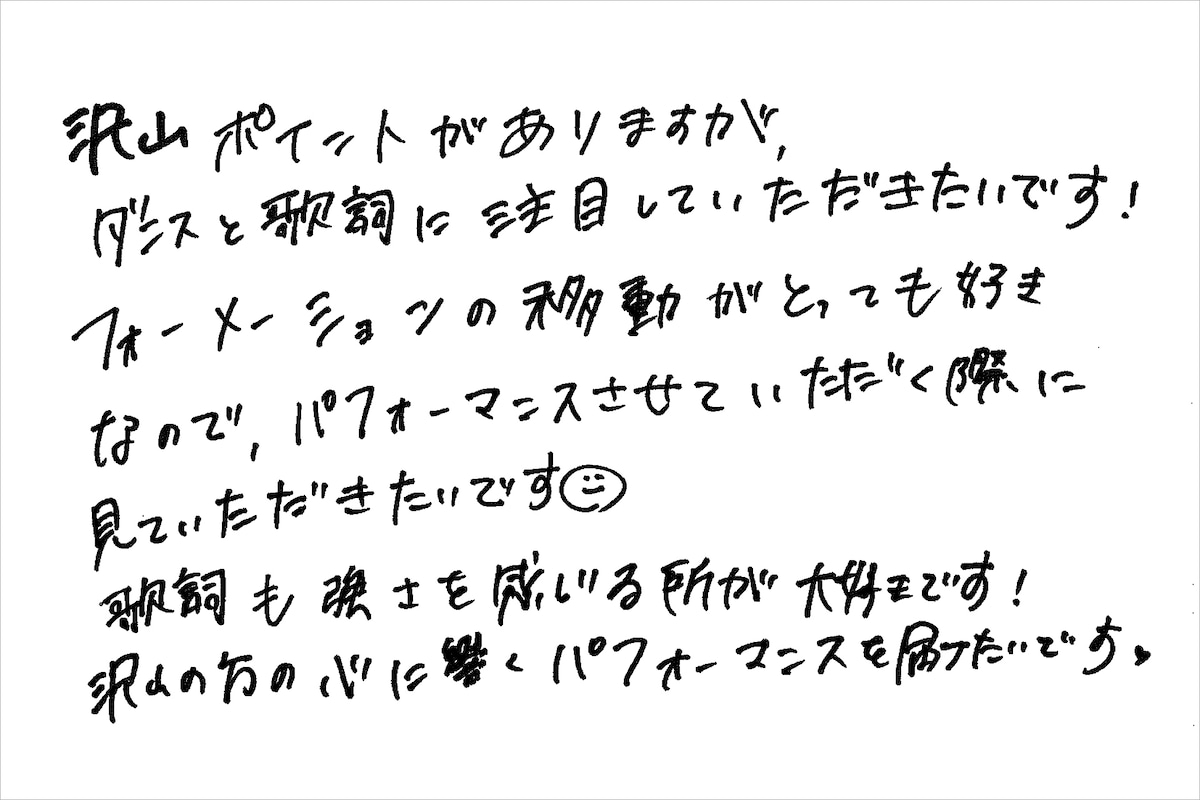 沢山ポイントがありますが、
ダンスと歌詞に注目していただきたいです!
フォーメーションの移動がとっても好き
なので、パフォーマンスさせていただく際に
見ていただきたいです☺
歌詞も強さを感じる所が大好きです!
沢山の方の心に響くパフォーマンスを届けたいです♥